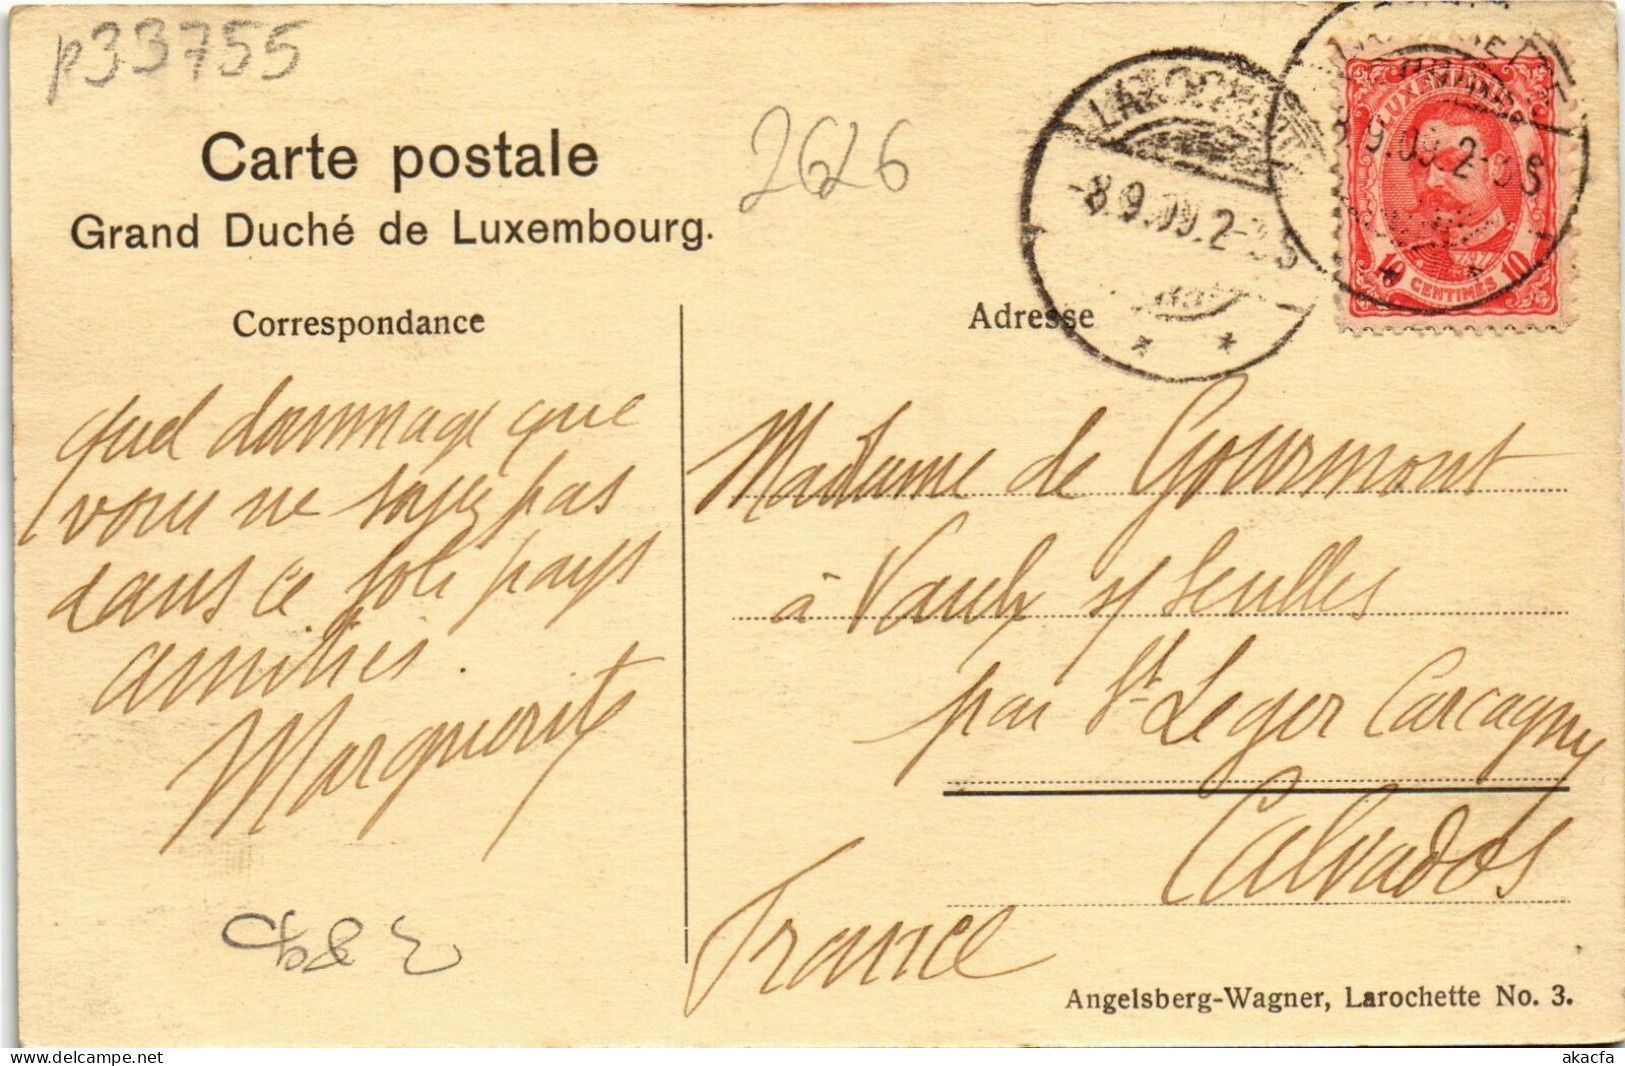 p33755
Carte postale
Grand Duché de Luxembourg.
2626
LAROCHETTE
-8.9.09.2-3S
8.9.09.2-3S
LUXEMBOURG
10 CENTIMES 10
Correspondance
Adresse
quel dommage que
vous ne soyez pas
dans ce joli pays
amitiés.
Marguerite
Madame de Gourmont
à Vaulx s/ Seulles
par St Leger Carcagny
Calvados
France
Angelsberg-Wagner, Larochette No. 3.
akacfa
delcampe.net